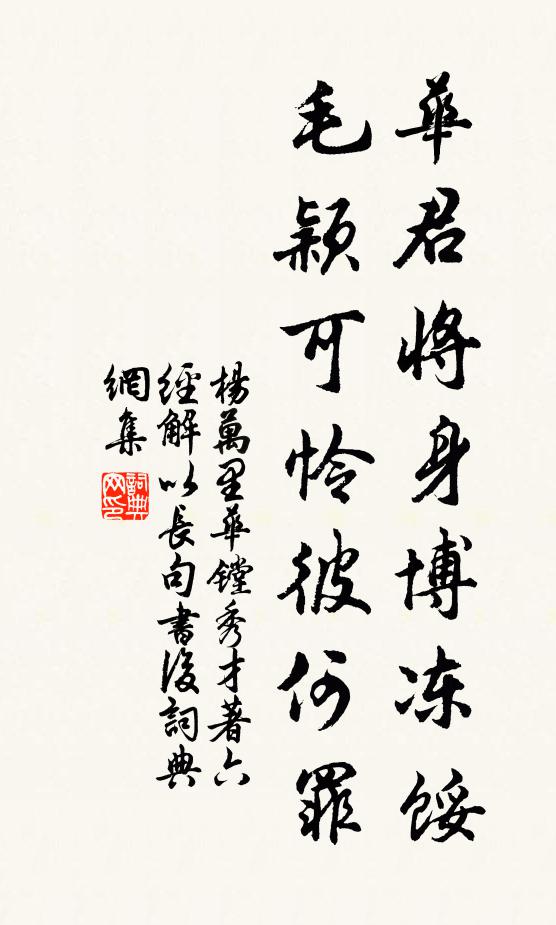 華君將身博冻餒
毛颖可怜彼何罪
楊萬里華镗秀才著六
經解以長句書後詞典
網集
詞典网印